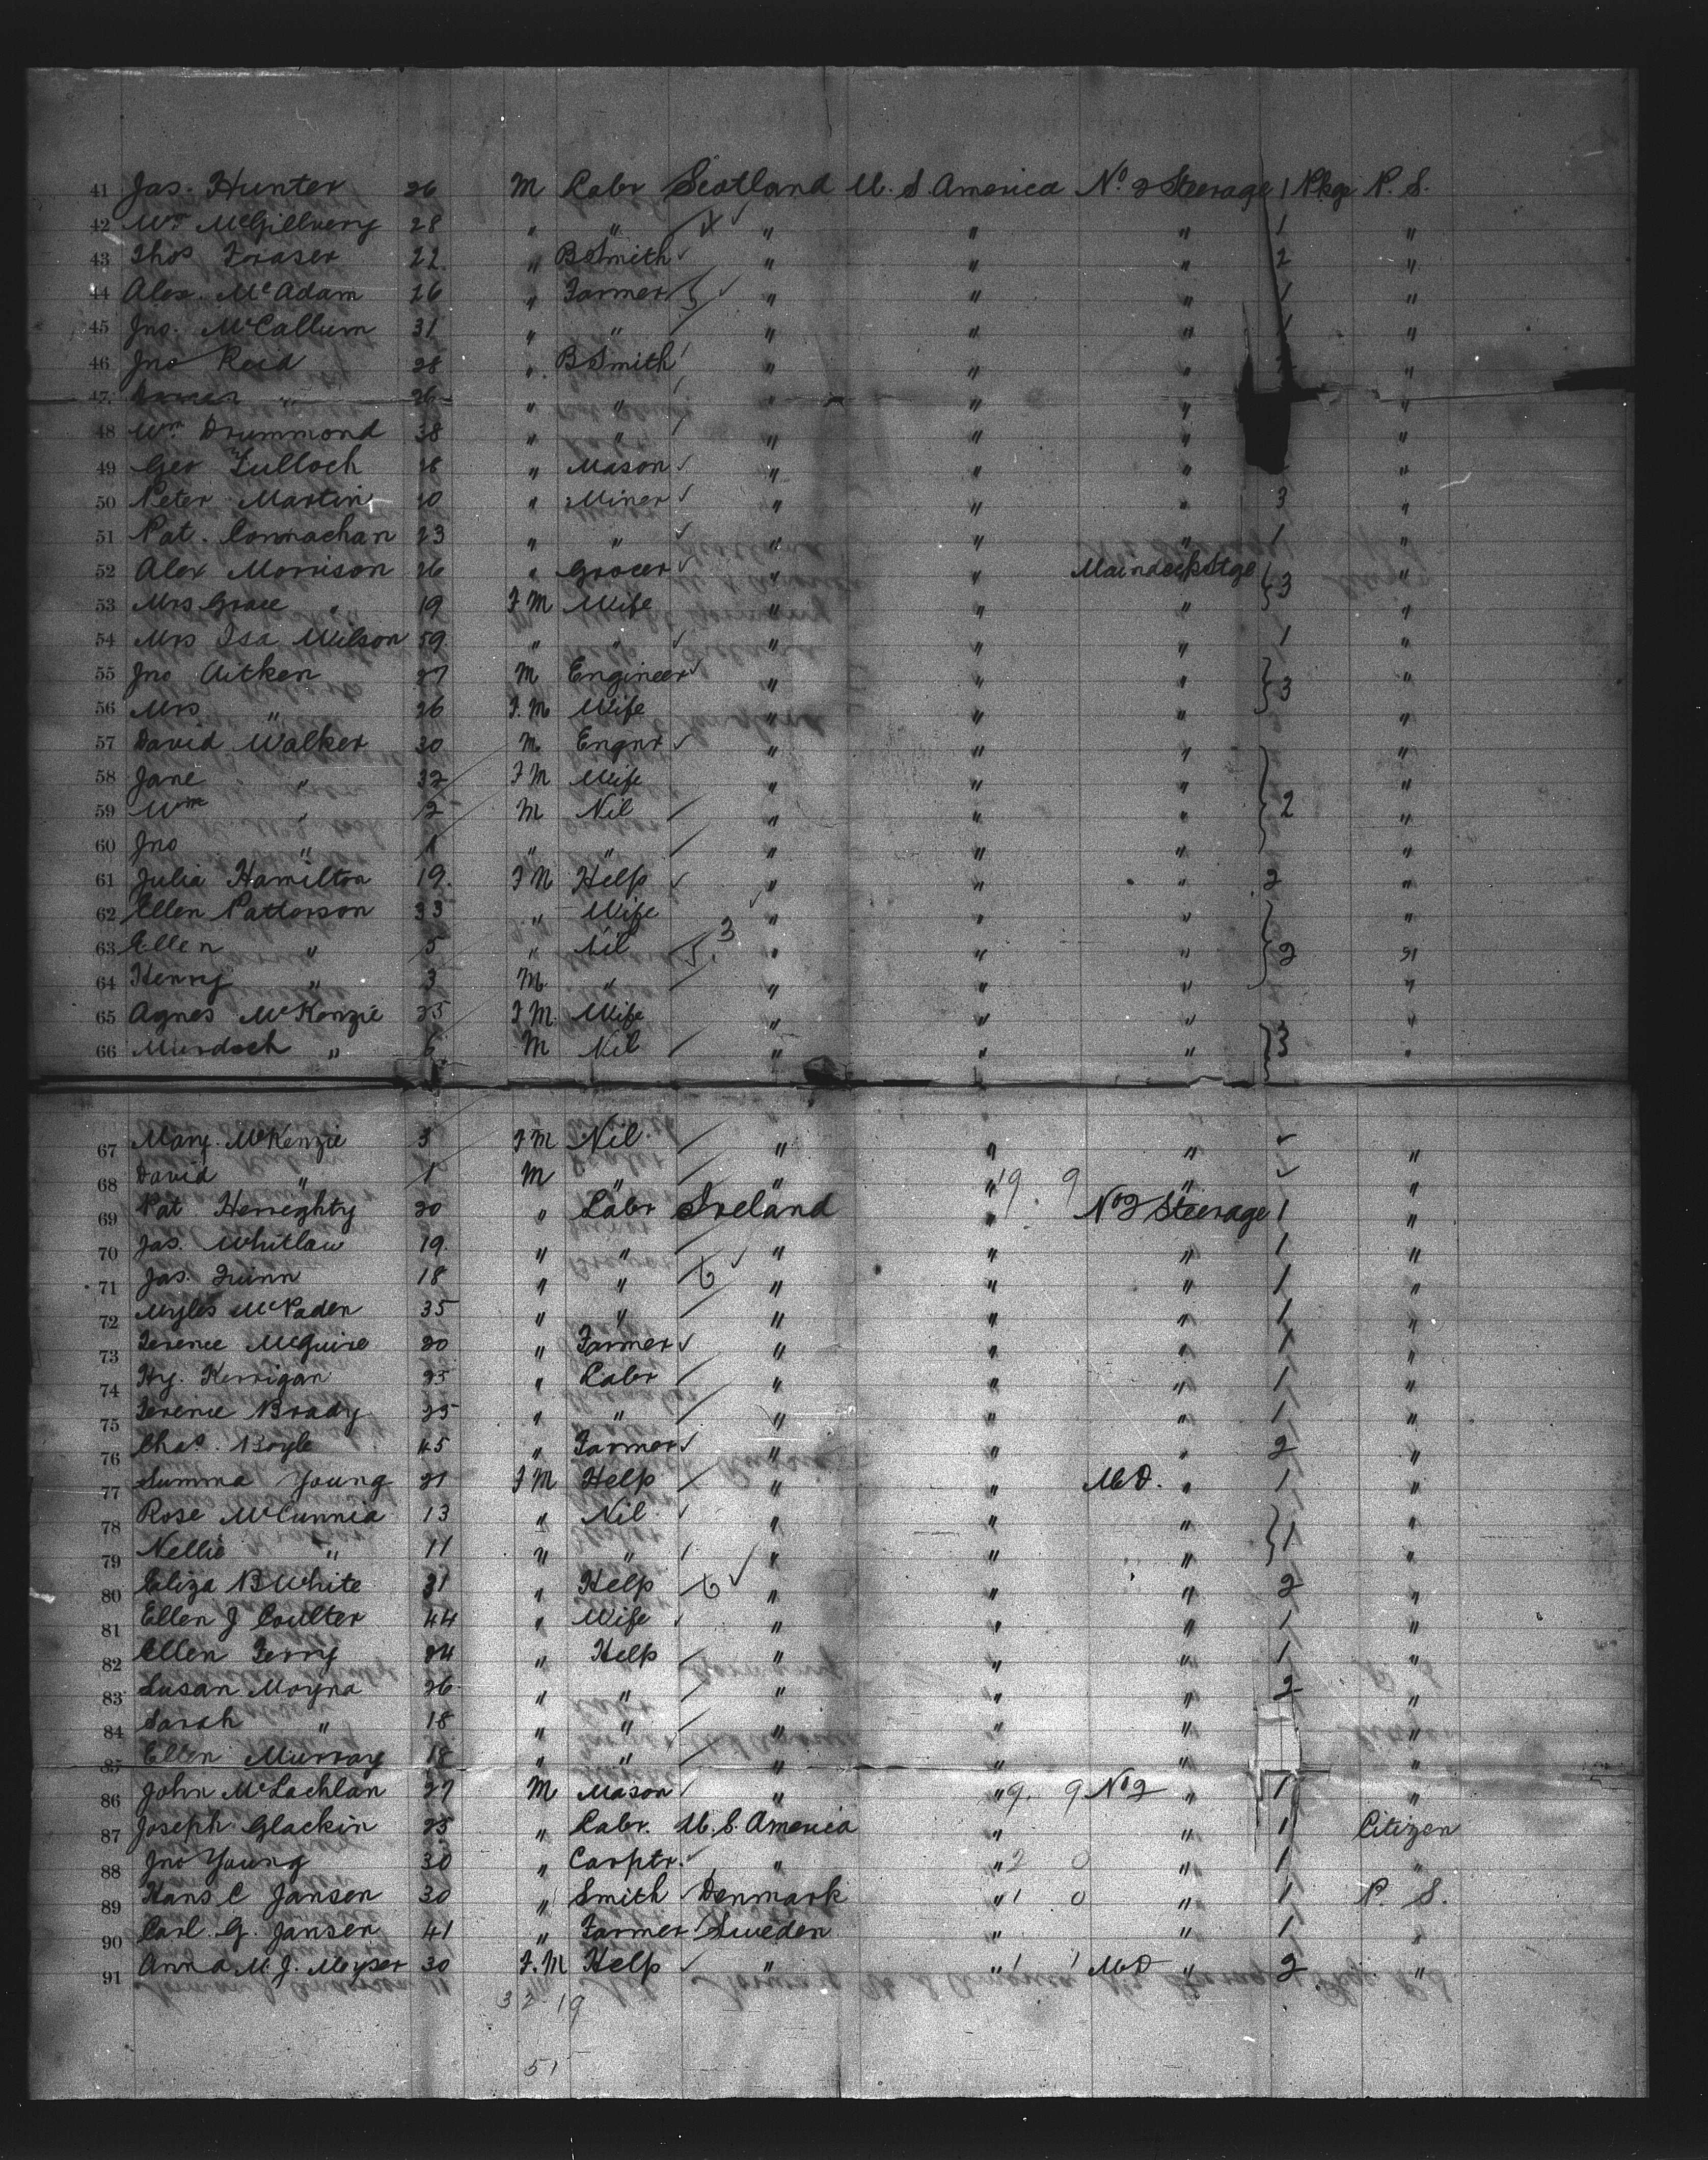 41 Jas. Hunter 26 M Labr Scotland U. S America No 2 Steerage 1 Pkge P. S.
42 Wm McGillvery 28 " " " " " 1 "
43 Thos Fraser 22 " BSmith " " " 2 "
44 Alex. McAdam 26 " Farmer " " " 1 "
45 Jno. McCallum 31 " " " " " 1 "
46 Jno Reid 28 " BSmith " " " "
47 " 26 " " " " " "
48 Wm Drummond 38 " " " " " "
49 Geo Tulloch " Mason " " " "
50 Peter Martin " Miner " " " 3 "
51 Pat. Connachan 23 " " " " " 1 "
52 Alex Morrison 26 " Grocer " " Maindeck Stge } 3 "
53 Mrs Grace " 19 F M Wife " " " "
54 Mrs Isa Wilson 59 " " " " " 1 "
55 Jno Aitken 27 M Engineer " " " } 3 "
56 Mrs " 26 F. M Wife " " " "
57 David Walker 30 M Engnr " " " "
58 Jane " 32 F M Wife " " " "
59 Wm " 2 M Nil " " " } 2 "
60 Jno " 1 " " " " " "
61 Julia Hamilton 19. F M Help " " " 2 "
62 Ellen Patterson 33 " Wife " " " "
63 Ellen " 5 " Nil 3 " " " } 2 "
64 Henry " 3 M " " " " "
65 Agnes McKenzie 25 F M. Wife " " " "
66 Murdoch " 6 M Nil " " " } 3 "
67 Mary. McKenzie 3 F M Nil " " " "
68 David " 1 M " " " 19. 9 " "
69 Pat Herreghty 20 " Labr Ireland " No 2 Steerage 1 "
70 Jas. Whitlaw 19. " " " " " 1 "
71 Jas. Quinn 18 " " " " " 1 "
72 Myles McPaden 35 " " " " " 1 "
73 Terence McGuire 20 " Farmer " " " 1 "
74 Hy. Kerrigan 25 " Labr " " " 1 "
75 Terence Brady 25 " " " " " 1 "
76 Chas. Boyle 45 " Farmer " " " 2 "
77 Summa Young 21 F M Help " " M D. " 1 "
78 Rose McCunnia 13 " Nil " " " "
79 Nellie " 11 " " " " " } 1 "
80 Eliza B White 31 " Help " " " 2 "
81 Ellen J Coulter 44 " Wife " " " 1 "
82 Ellen Ferry 24 " Help " " " 1 "
83 Susan Moyna 26 " " " " " 2 "
84 Sarah " 18 " " " " " "
85 Ellen Murray 18 " " " " " "
86 John McLachlan 27 M Mason " " 9. 9 No 2 " 1 "
87 Joseph Glackin 25 " Labr. U. S. America " " 1 Citizen
88 Jno Young 30 " Carptr. " " 2 0 " 1 "
89 Hans C Jansen 30 " Smith Denmark " 1 0 " 1 P. S.
90 Carl. G. Jansen 41 " Farmer Sweden " " 1 "
91 Anna M. J. Meyser 30 F. M Help " " 1 1 M D " 2 "
32 19
51